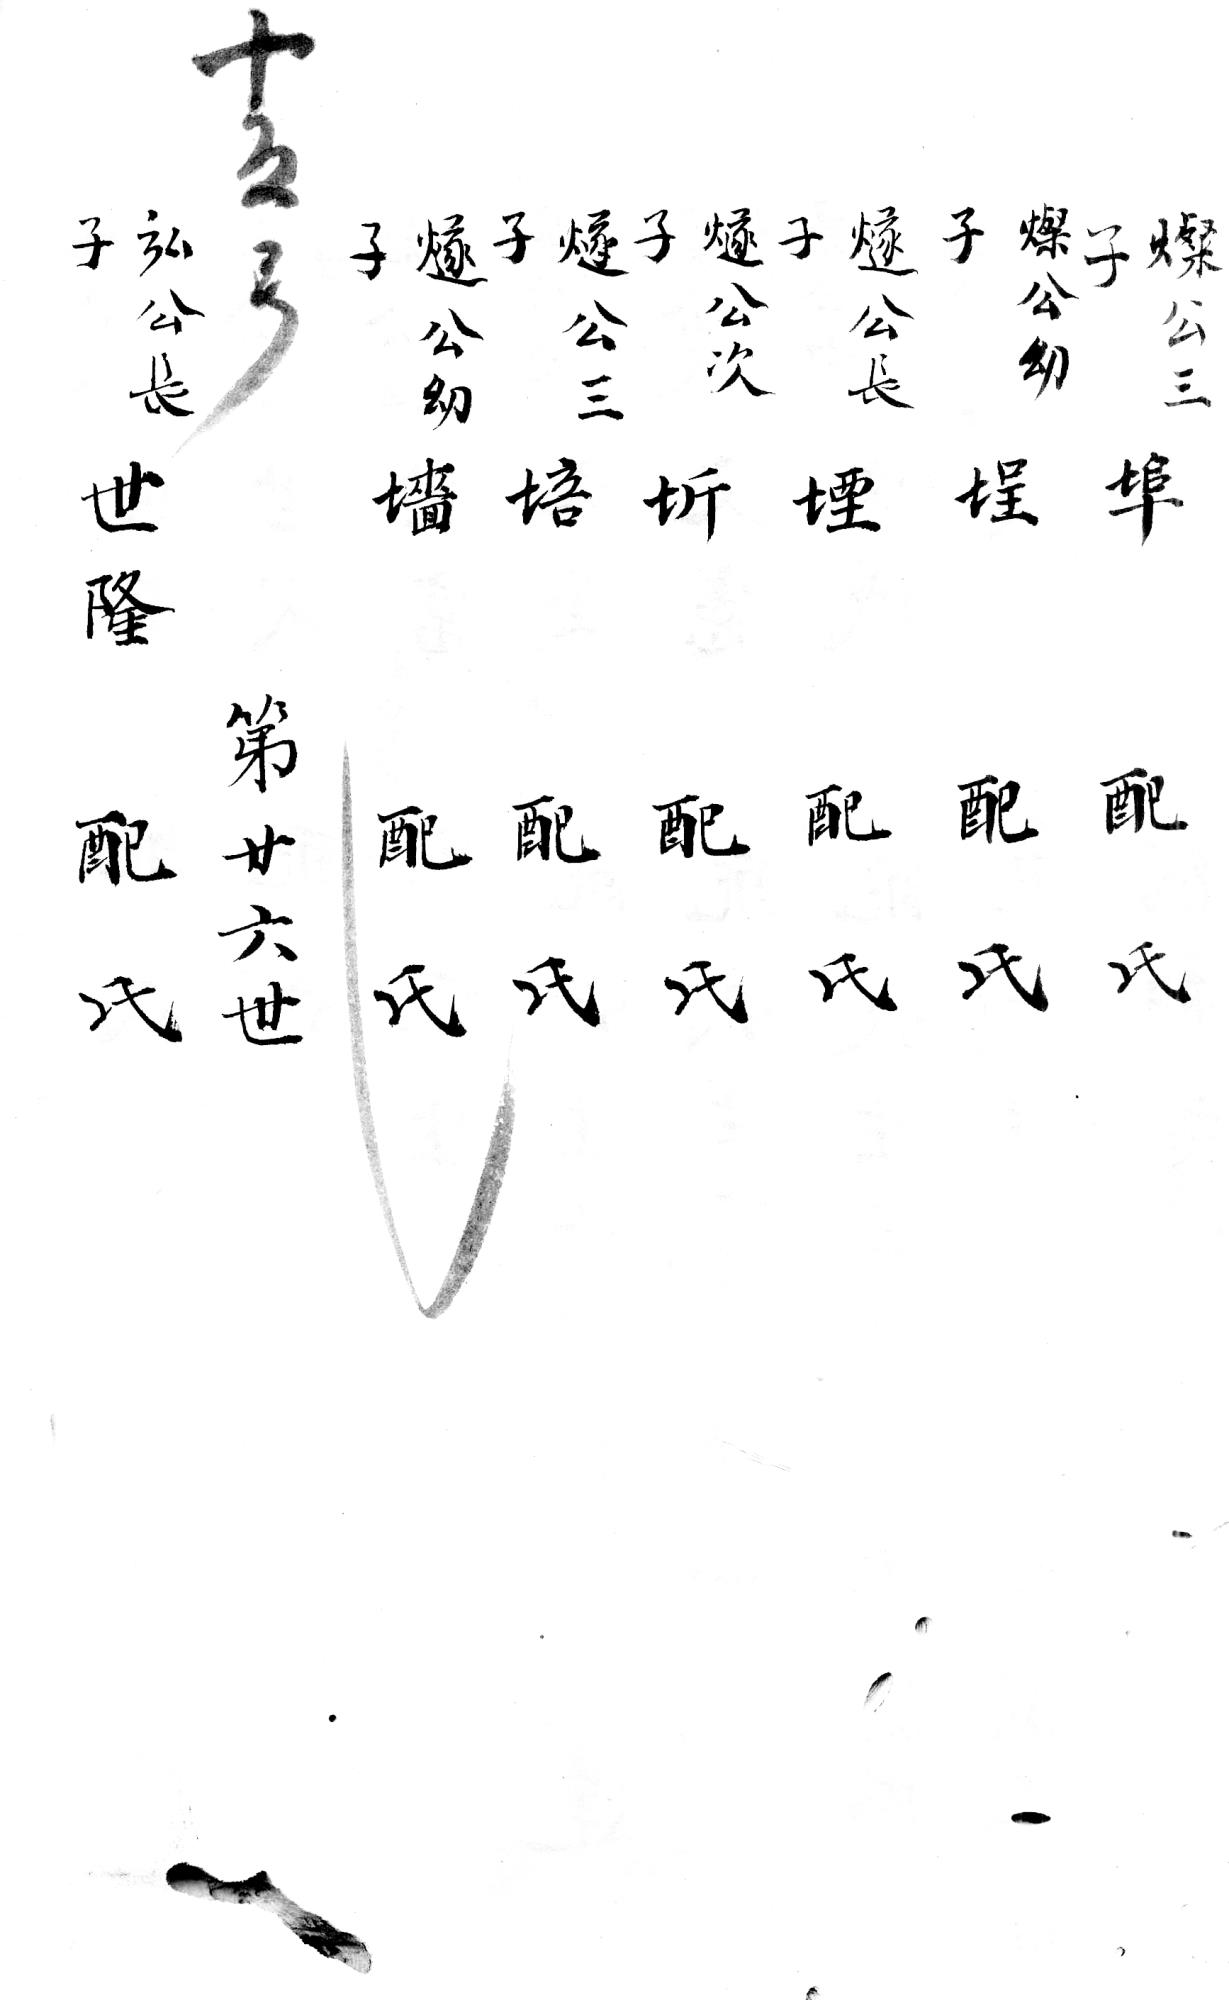 燦公三子 埠 配 氏
燦公幼子 埕 配 氏
燧公長子 堙 配 氏
燧公次子 圻 配 氏
燧公三子 培 配 氏
燧公幼子 墻 配 氏
第廿六世
弘公長子 世隆 配 氏